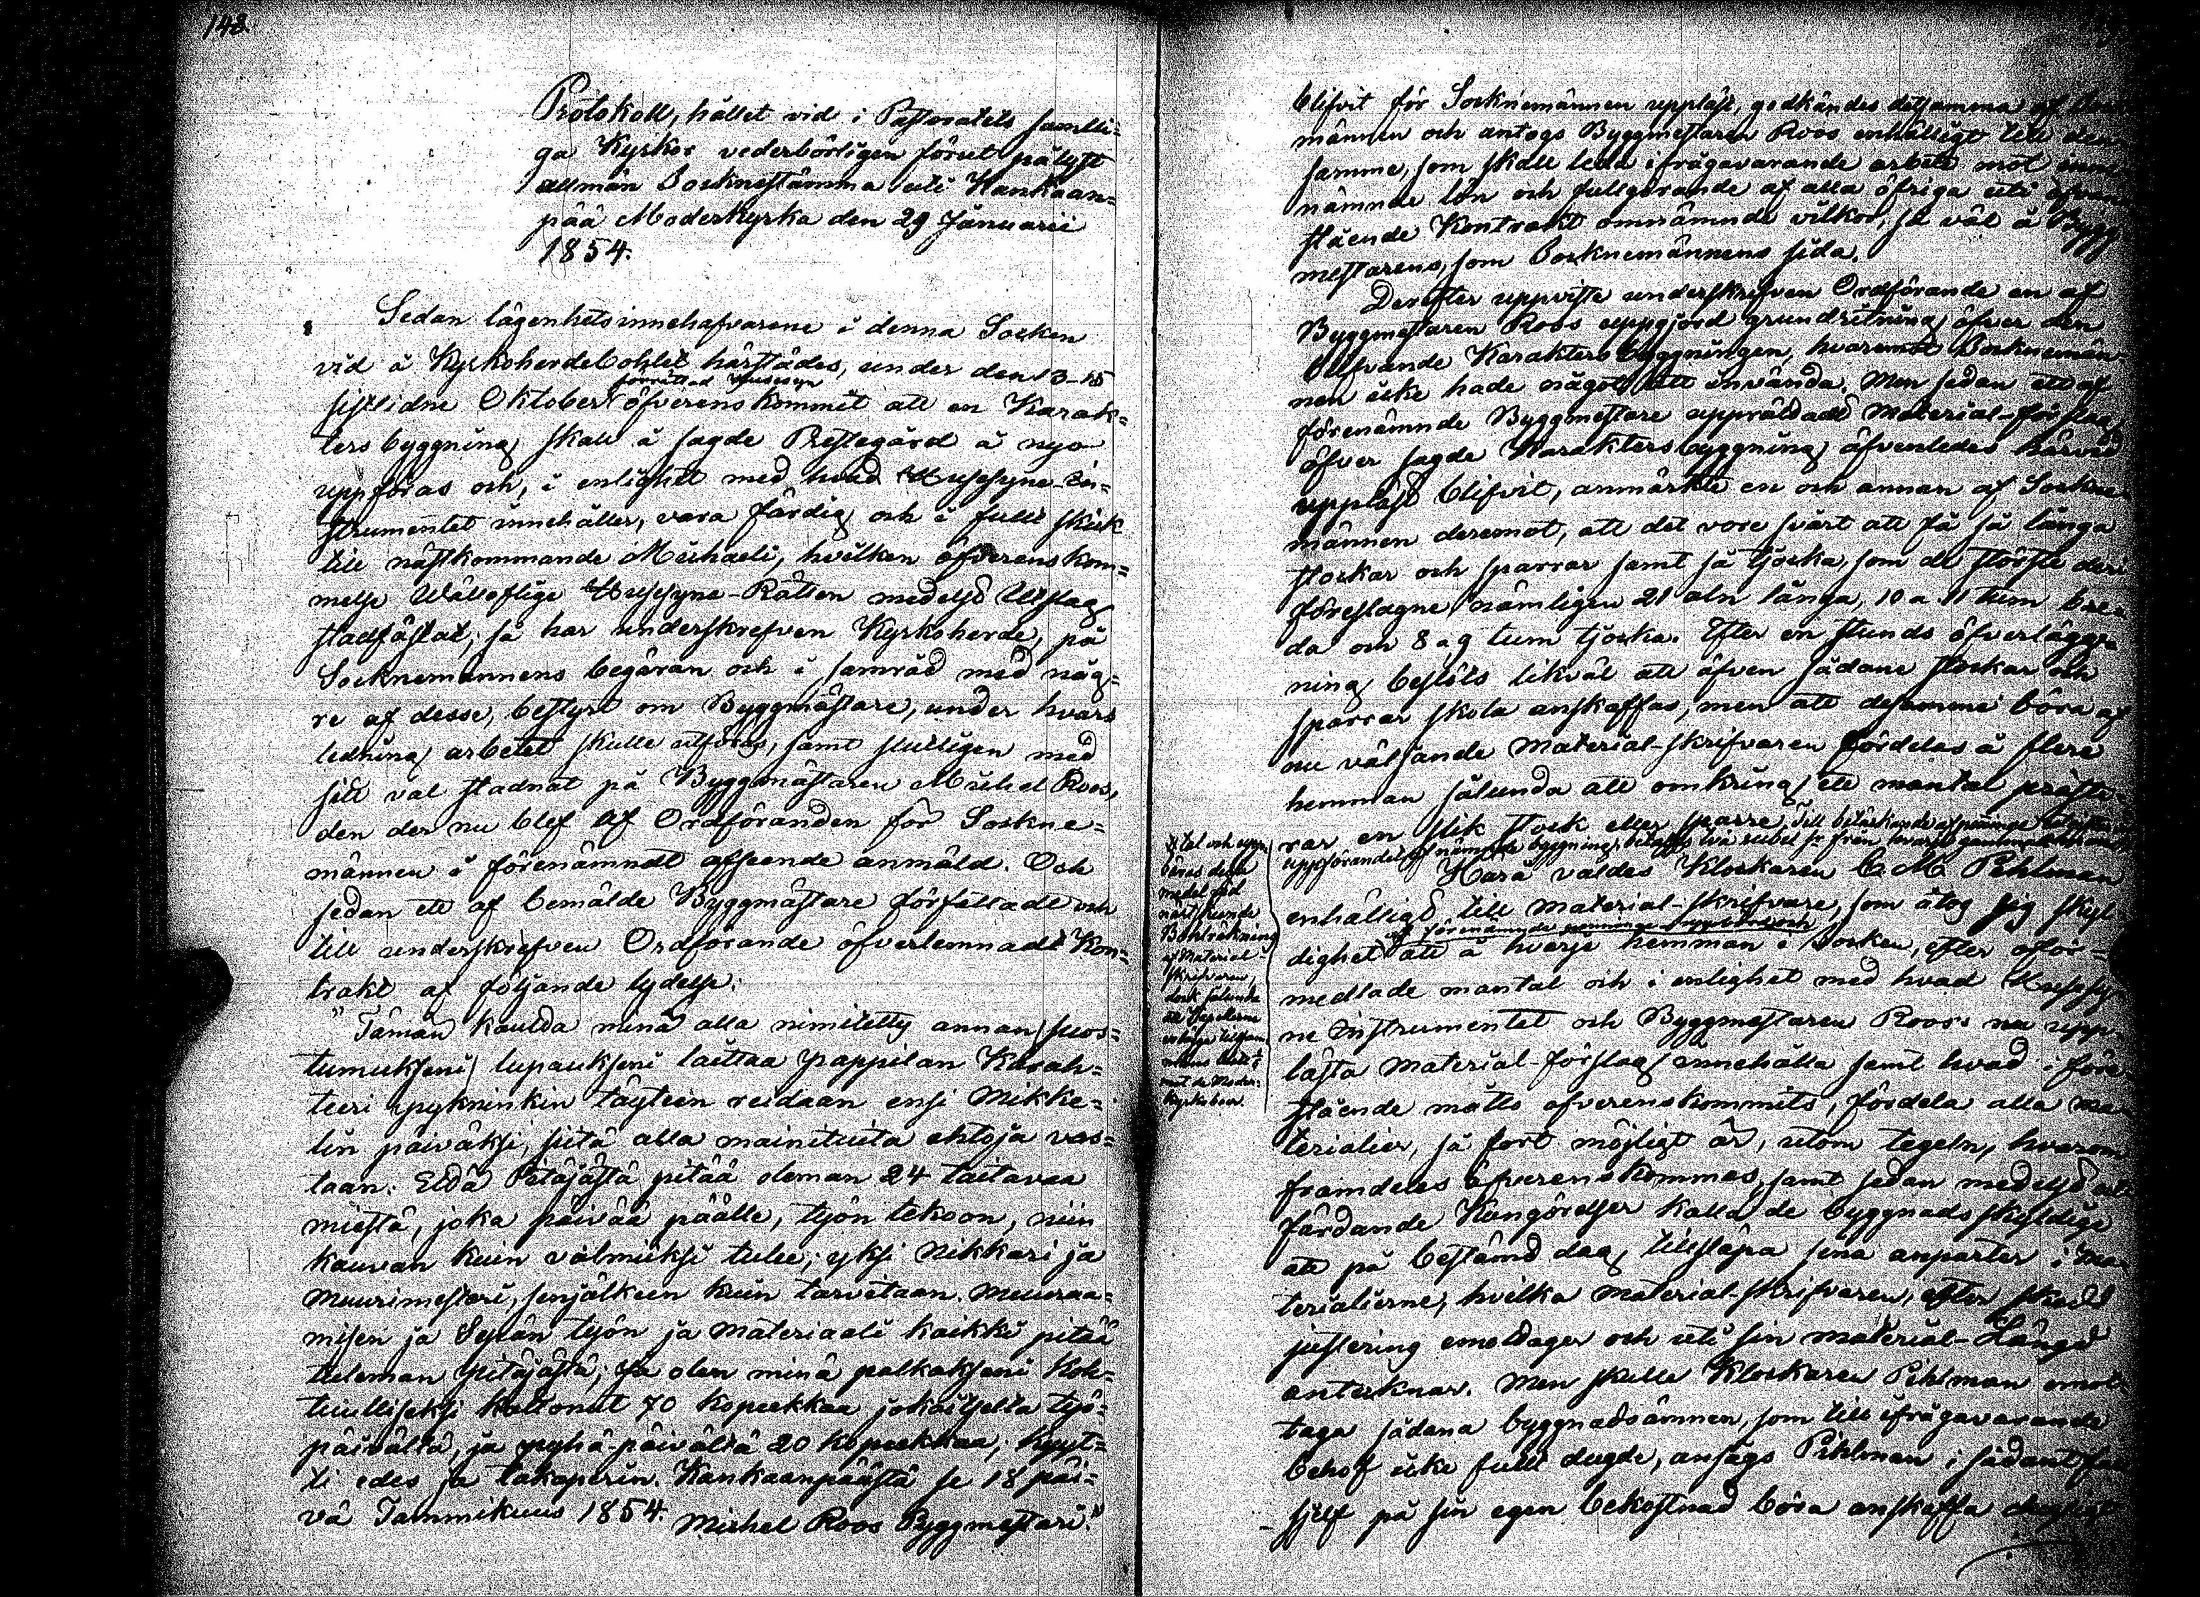 148.
Protokoll, hållet vid i Pastoratets samtli=
ga Kyrkor vederbörligen förut pålyst
allmän Socknestämma uti Kankaan=
pää Moderkyrka den 29 Januarii
1854.
Sedan lägenhetsinnehafvarene i denna Socken
vid å Kyrkoherdebohlet härstädes, under den 13-15
förrättad Husesyn
sistlidne Oktober öfverenskommit att en Karak=
ters byggning skall å sagde Prestegård å nyo
uppföras och, i enlighet med hvad Husesyne-In=
strumentet innehåller, vara färdig och i fullt skick
till nästkommande Michaeli, hvilken öfverenskom=
melse Wällofliga Husesyne-Rätten medelst Utslag
stadfästat; så har underskrefven Kyrkoherde, på
Socknemännens begäran och i samråd med någ=
re af desse, bestyrt om Byggmästare, under hvars
ledning arbetet skulle utföras, samt slutligen med
sitt val stadnat på Byggmästaren Michel Roos,
den der nu blef af Ordföranden för Sockne=
männen i förenämndt afseende anmäld. Och
sedan ett af bemälde Byggmästare författadt och
till underskrefven Ordförande öfverlemnadt Kon=
trakt af följande lydelse:
"Tämän kautta minä alla nimitetty annan suos=
tumukseni lupaukseni laittaa pappilan Karah=
teeri pykninkin täyteen reidaan ensi Mikke=
lin päiväksi, siitä alla mainituita ehtoja vas=
taan: Että Pitäjästä pitää oleman 24 taitavaa
miestä, joka päivää päälle, työn tekoon, niin
kauvan kuin valmiiksi tulee; yksi Nikkari ja
Muurimestari, senjälkeen kuin tarvitaan. Muuraa=
misen ja Sepän työn ja Materiaali kaikki pitää
tuleman pitäjästä; Ja olen minä palkakseni Koh=
tuulliseksi kattonut 70 kopeekkaa jokaitselta työ=
päivältä, ja pyhä-päivältä 20 kopeekkaa, kyyt=
ti edes ja takaperin. Kankaanpäästä se 18 päi=
vä Tammikuus 1854. Michel Roos Byggmestari."
blifvit för Socknemännen uppläst, godkändes detsamma af
männen och antogs Byggmestaren Roos enhälligt till den
samme, som skall leda ifrågavarande arbete mot
nämnde lön och fullgörande af alla öfriga uti ofvan
stående Kontrakt omnämnde vilkor, så väl å Bygg
mestarens, som Socknemännens sida.
Derefter uppviste underskrefven Ordförande en af
Byggmestaren Roos uppgjord grundritning öfver den
blifvande Karaktersbyggningen, hvaremot Socknemän=
nen icke hade något att invända. Men sedan ett af
förenämnde Byggmestare upprättadt Material-förslag
öfver sagde Karaktersbyggning äfvenledes härvid
uppläst blifvit, anmärkte en och annan af Sockne
männen deremot, att det vore svårt att få så långa
stockar och sparrar samt så tjocka, som de störste deri
föreslagne nämligen 21 aln långa, 10 a 11 tum bre=
da och 8 a 9 tum tjocka. Efter en stunds öfverlägg=
ning beslöts likväl att äfven sådane stockar och
sparrar skola anskaffas, men att desamme böra af
nu väljande Material-skrifvaren fördelas å flere
hemman sålunda att omkring ett mantal præste=
rar en slik stock eller sparre. Till
uppförandet af nämnde byggning, betalas två rubel Sr från hvarje
Härå valdes Klockaren C M Pihlman
enhälligt till Material-skrifvare, som åtog sig skyl
dighet att å hvarje hemman i Socken, efter oför=
medlade mantal och i enlighet med hvad Husesy=
ne Instrumentet och Byggmestaren Roos nu upp
lästa Material-förslag innehålla samt hvad i före
stående måtto öfverenskommits, fördela alla ma
terialier, så fort möjligt är, utom tegeln, hvarom
framdeles öfverenskommes, samt sedan medelst ut
färdande Kungörelser kalla de byggnadsskyldige
att på bestämd dag tillsläpa sina anparter i ma
terialierne, hvilka Material-skrifvaren, efter skedd
justering emottager och uti sin Material-Längd
antecknar. Men skulle Klockaren Pihlman emot=
taga sådana byggnadsämnen, som till ifrågavarande
behof icke fullt dugde, ansågs Pihlman i sådant fall
sjelf på sin egen bekostnad böra anskaffa dugligt